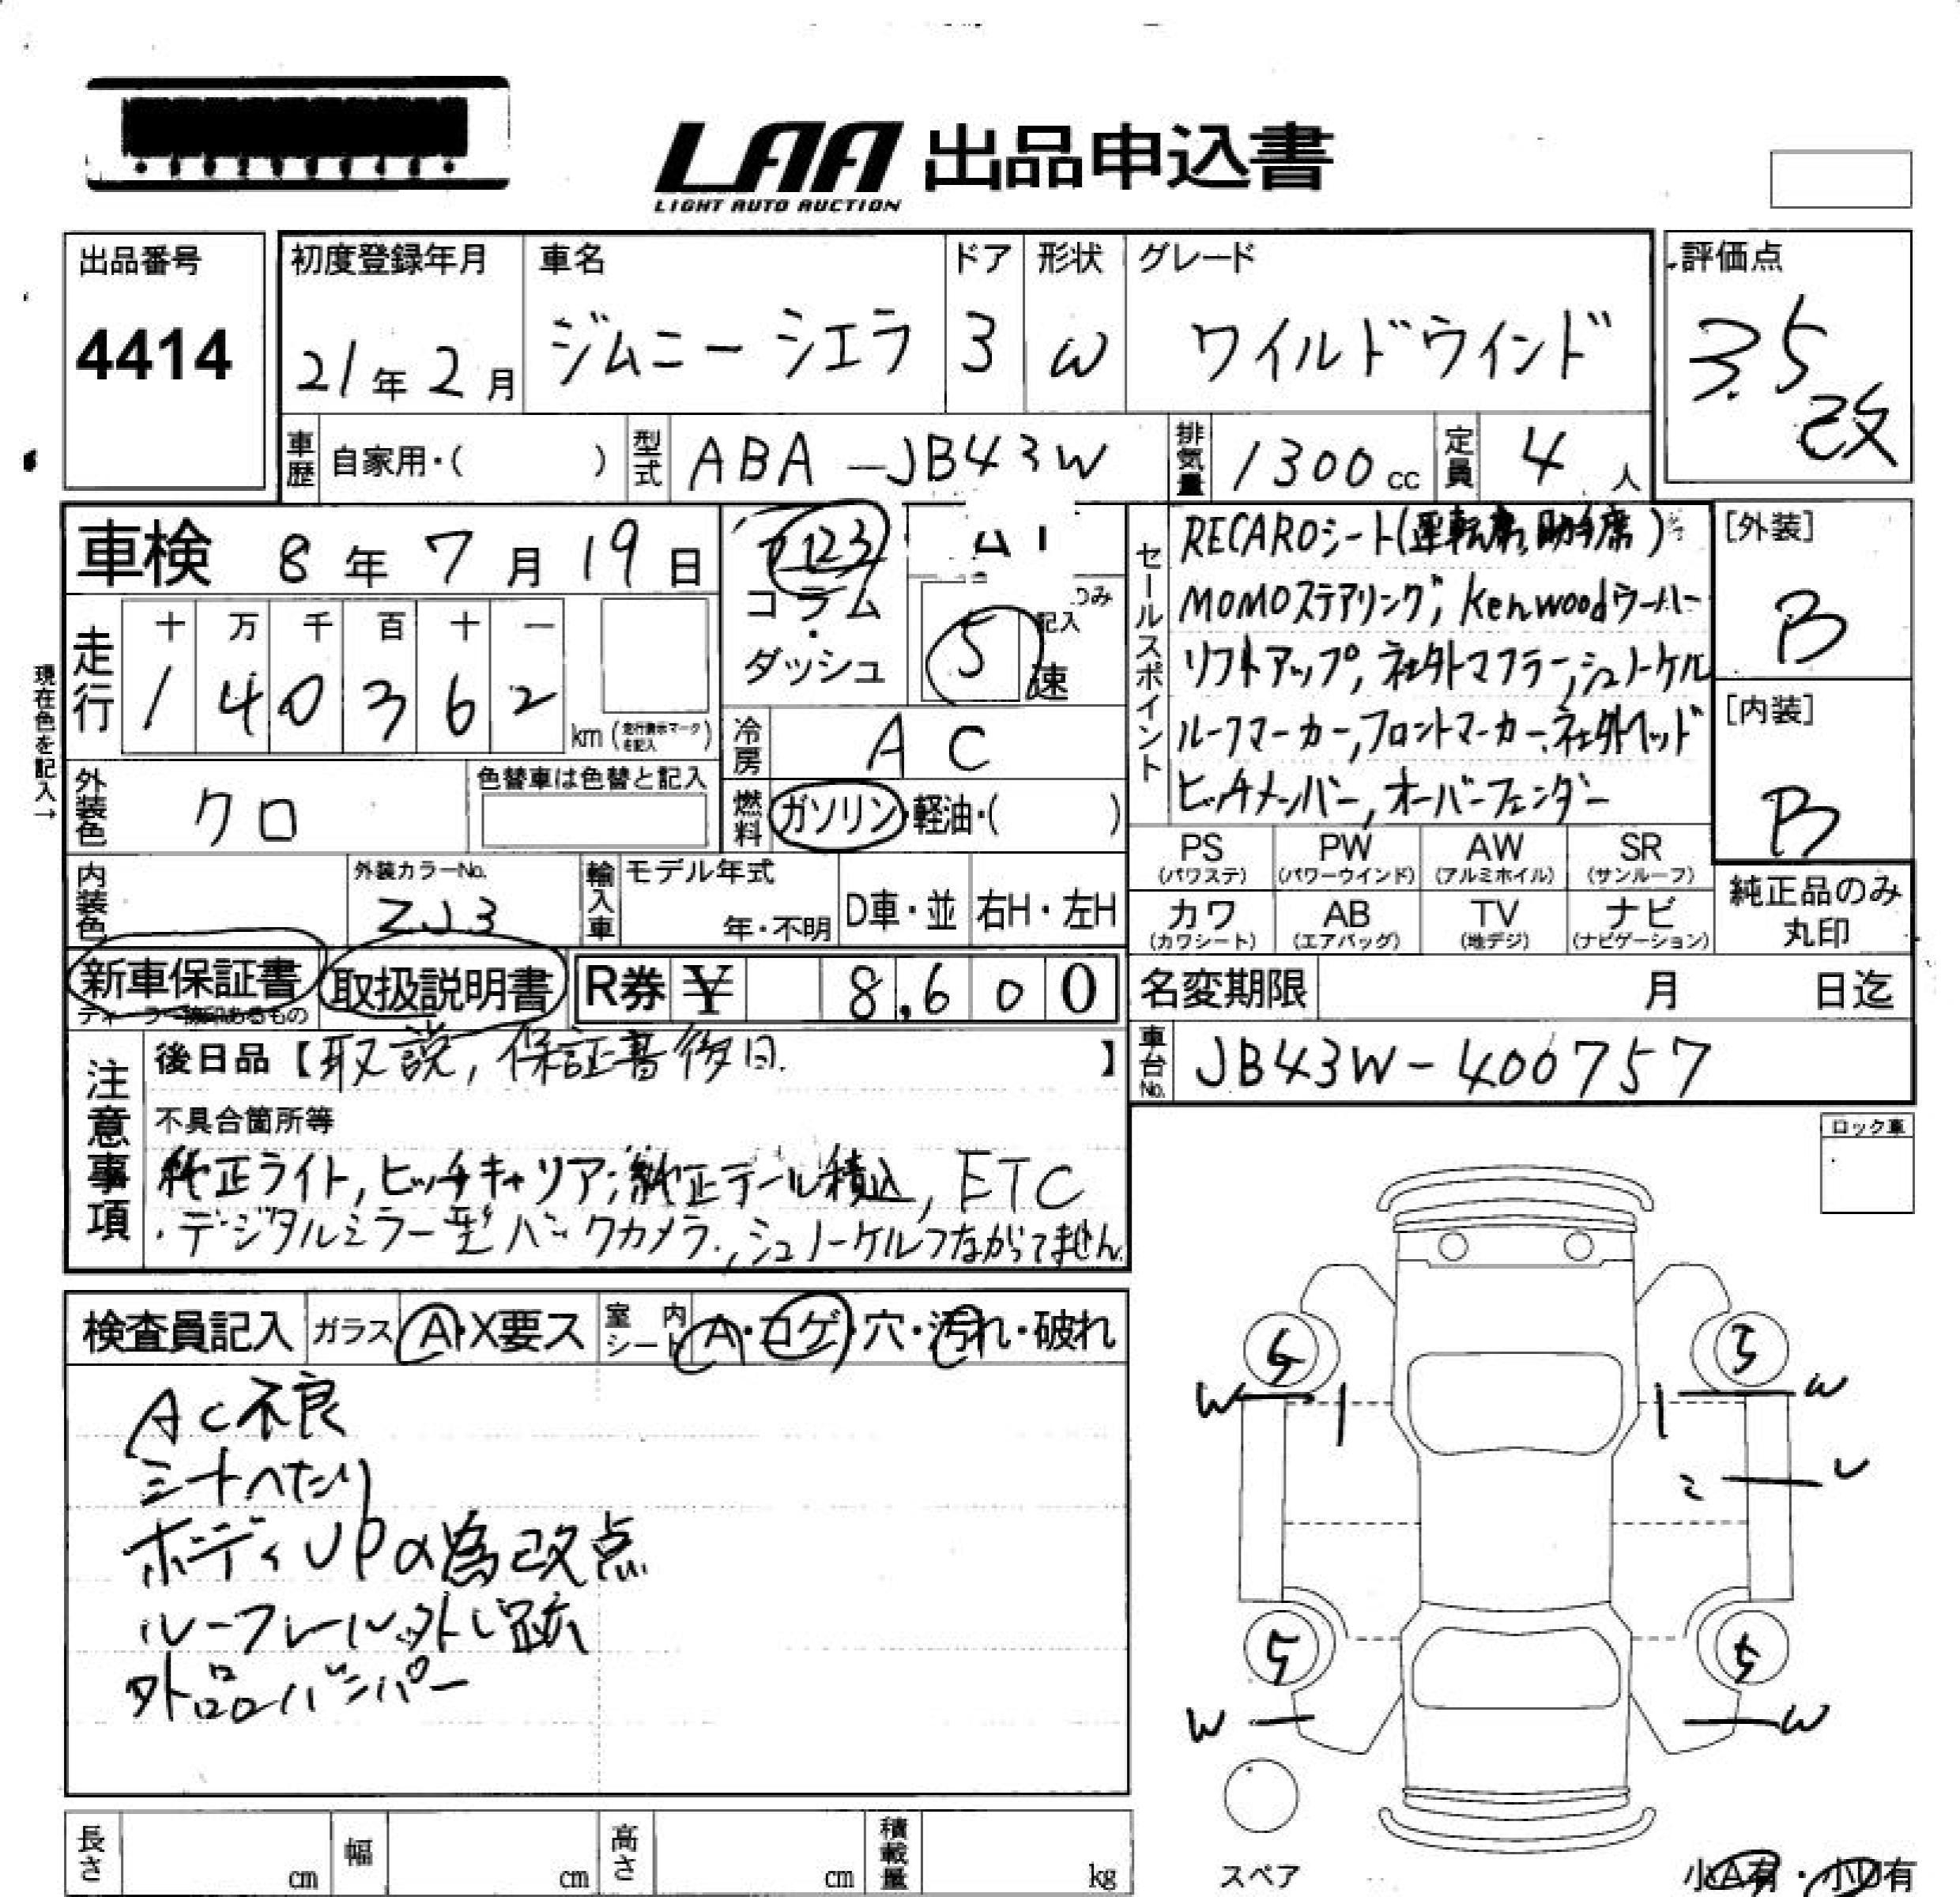 LAA 出品申込書
LIGHT AUTO AUCTION
出品番号
4414
初度登録年月
21年2月
車名
ジムニーシエラ
ドア
3
形状
W
グレード
ワイルドウインド
評価点
3.5
改
車歴 自家用・( )
型式 ABA-JB43W
排気量 1300cc
定員 4人
車検 8年7月19日
走行
十 万 千 百 十 一
1 4 0 3 6 2
km (走行表示マークを記入)
現在色を記入→
外装色 クロ
色替車は色替と記入
コラム
・
ダッシュ
のみ
記入
5速
冷房 AC
燃料 ガソリン・軽油・( )
内装色
外装カラーNo.
ZJ3
輸入車 モデル年式
年・不明
D車・並 右H・左H
セールスポイント
RECAROシート(運転席,助手席)
MOMOステアリング,Kenwoodウーハー
リフトアップ,社外マフラー,シュノーケル
ルーフマーカー,フロントマーカー,社外ヘッド
ヒッチメンバー,オーバーフェンダー
[外装]
B
[内装]
B
PS PW AW SR
(パワステ) (パワーウインド) (アルミホイル) (サンルーフ)
カワ AB TV ナビ
(カワシート) (エアバッグ) (地デジ) (ナビゲーション)
純正品のみ
丸印
新車保証書
取扱説明書
R券 ¥ 8,600
名変期限 月 日迄
車台No. JB43W-400757
注意事項
後日品【取説,保証書後日】
不具合箇所等
純正ライト,ヒッチキャリア,純正テール積込,ETC
・デジタルミラー型バックカメラ,シュノーケルつながってません
検査員記入 ガラス A・X要ス 室内シート A・コゲ・穴・汚れ・破れ
AC不良
シートへたり
ボディUPの為改点
ルーフレール外し跡
外品バンパー
ロック車
5
W
W
レ
ミ
5
5
W
W
スペア
長さ cm 幅 cm 高さ cm 積載量 kg
小A有・小U有